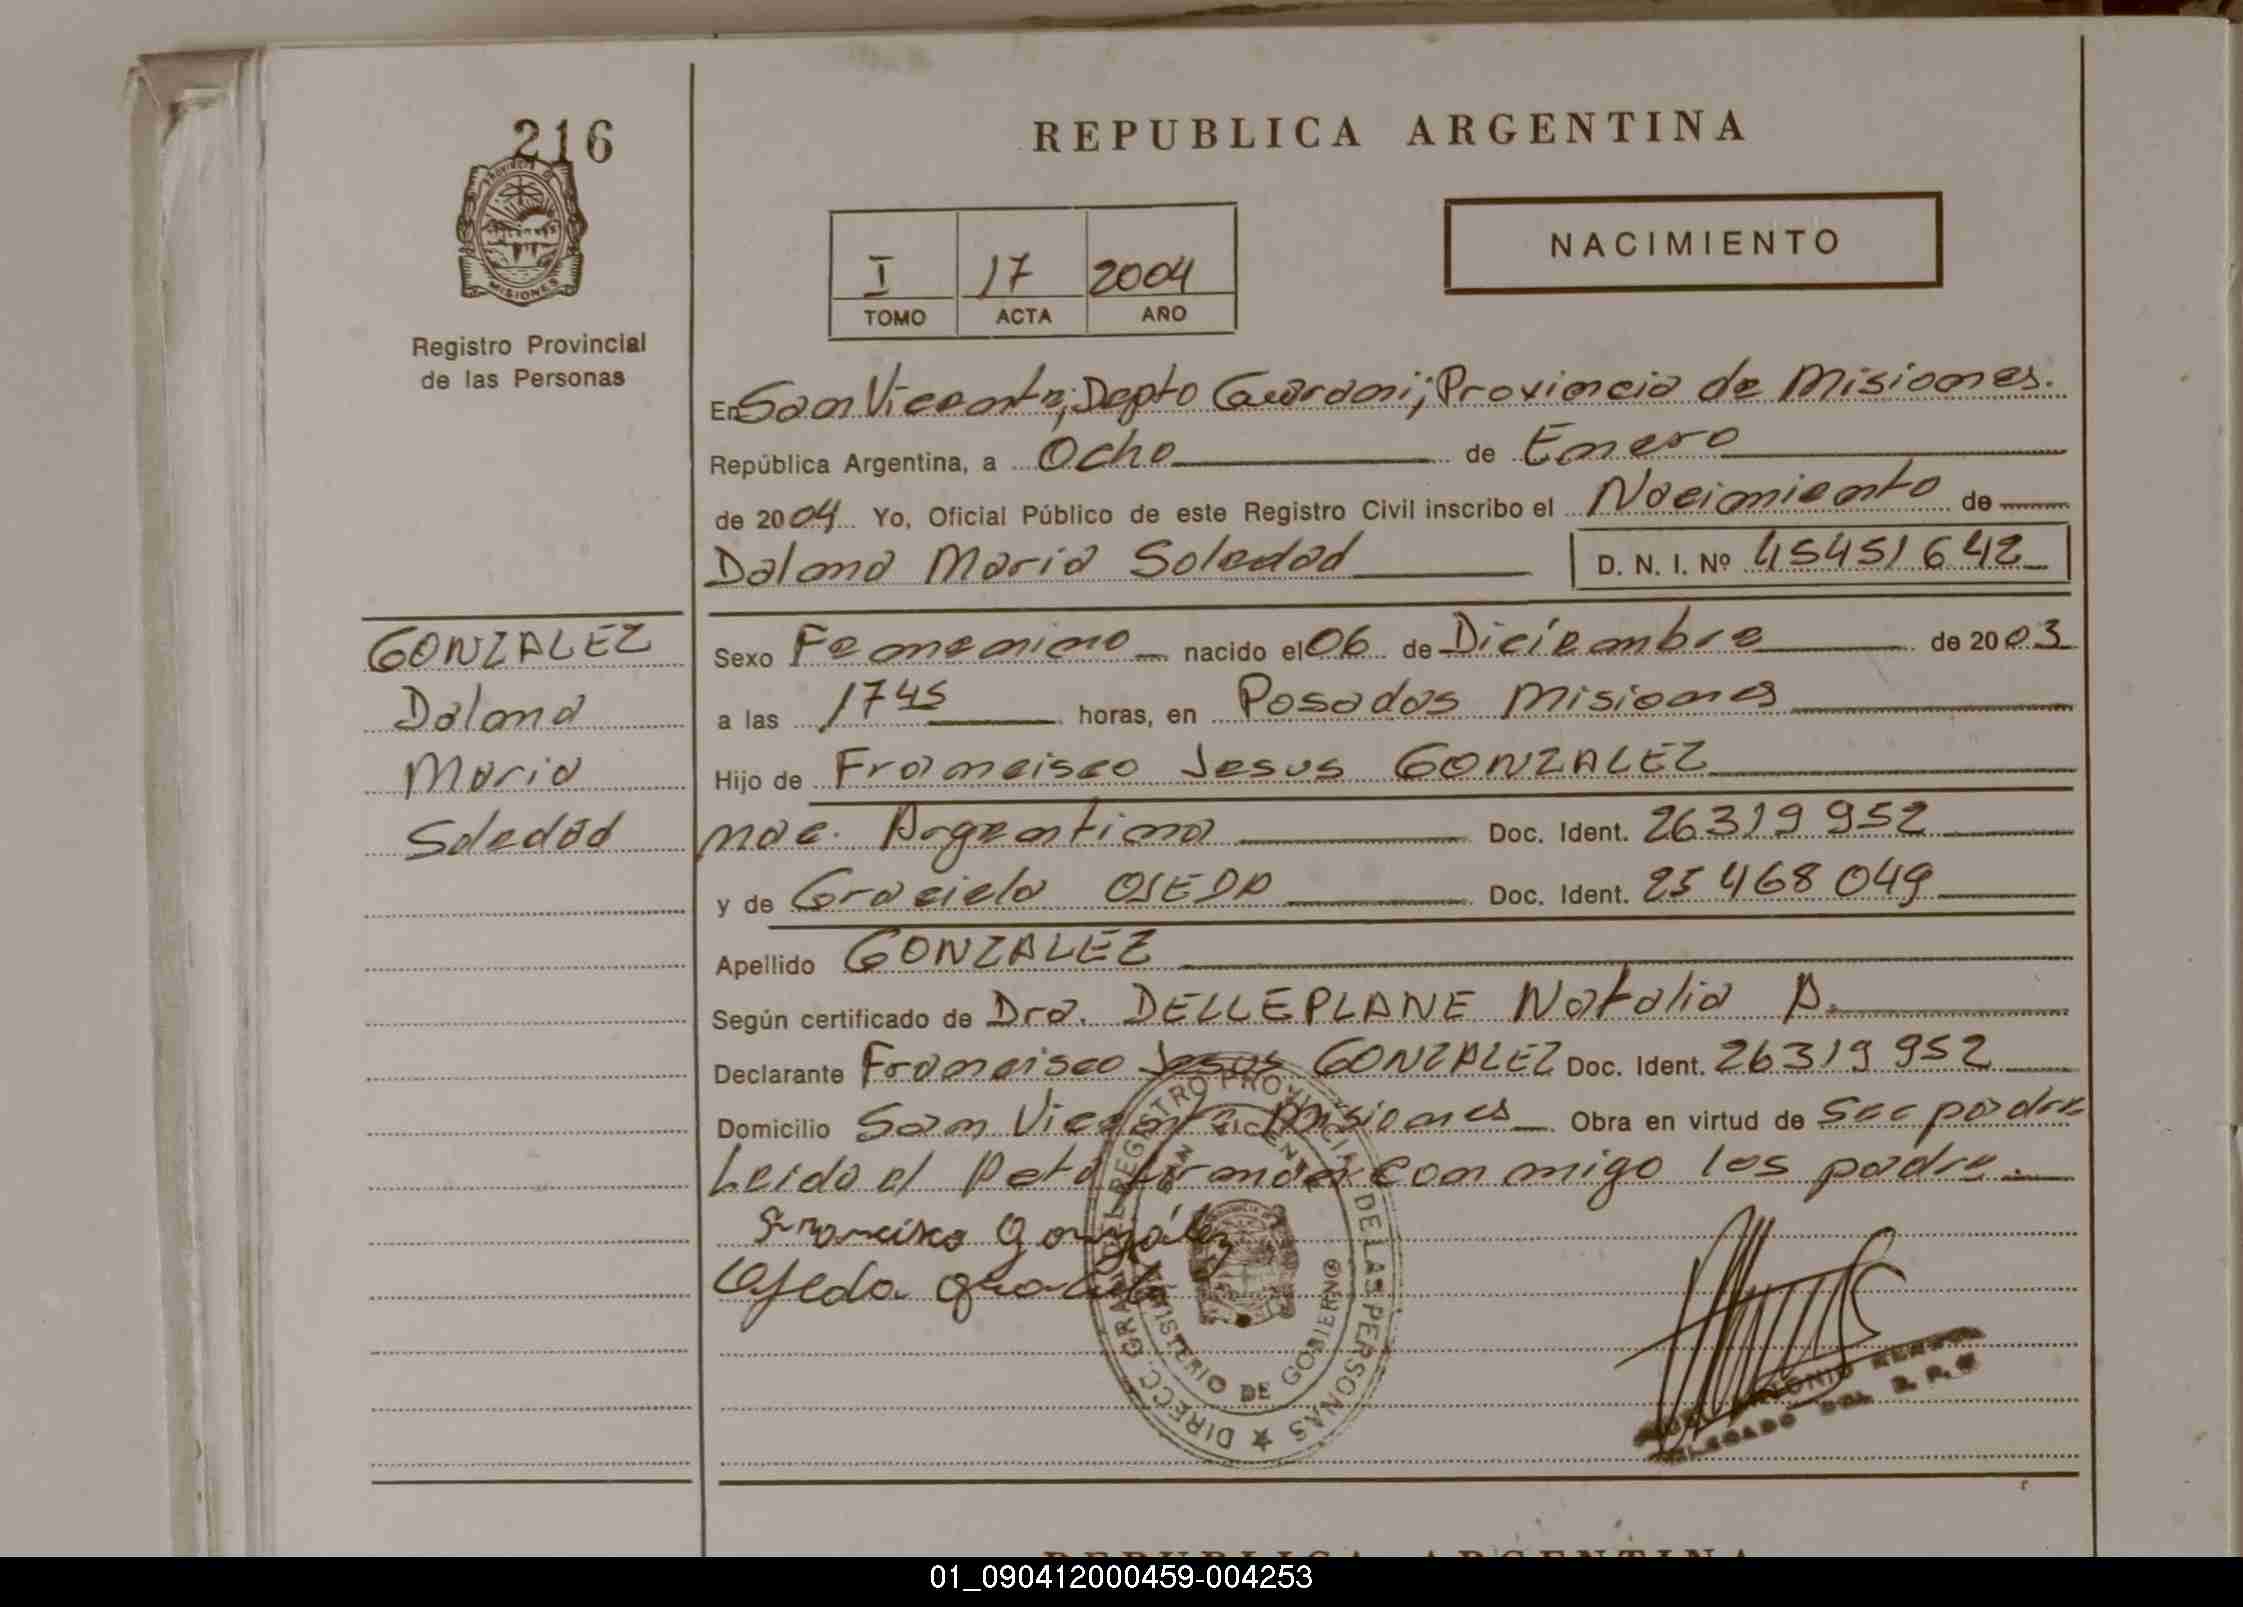 216
PROVINCIA DE
MISIONES
Registro Provincial
de las Personas
REPUBLICA ARGENTINA
NACIMIENTO
I 17 2004
TOMO ACTA AÑO
En San Vicente; Depto Guarani; Provincia de Misiones.
República Argentina, a Ocho de Enero
de 2004 Yo, Oficial Público de este Registro Civil inscribo el Nacimiento de
Dalana Maria Soledad D. N. I. Nº 45451642
GONZALEZ
Dalana
Maria
Soledad
Sexo Femenino nacido el 06 de Diciembre de 2003
a las 1745 horas, en Posadas Misiones
Hijo de Francisco Jesus GONZALEZ
nac. Argentina Doc. Ident. 26319952
y de Graciela OJEDA Doc. Ident. 25468049
Apellido GONZALEZ
Según certificado de Dra. DELLEPLANE Natalia A.
Declarante Francisco Jesus GONZALEZ Doc. Ident. 26319952
Domicilio San Vicente Misiones Obra en virtud de ser padre
Leido el Acta firman conmigo los padre.
Francisco González
Ojeda Graciela
DIRECC. GRAL. DEL REGISTRO PROVINCIAL DE LAS PERSONAS
SAN VICENTE
MINISTERIO DE GOBIERNO
ANTONIO
DELEGADO DEL R. P. P.
REPUBLICA ARGENTINA
01_090412000459-004253